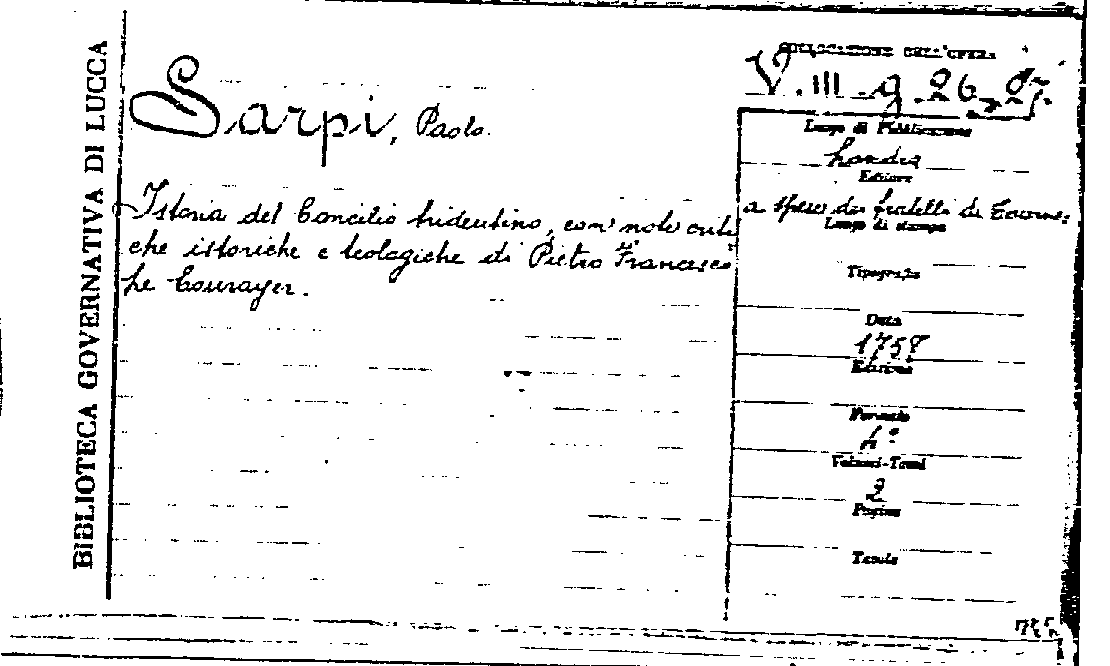 BIBLIOTECA GOVERNATIVA DI LUCCA
COLLOCAZIONE DELL'OPERA
V. III. g. 26
Sarpi, Paolo.
Luogo di Pubblicazione
Londra
Editore
a spese dei fratelli de Tournes
Istoria del Concilio tridentino, con note criti
che istoriche e teologiche di Pietro Francesco
Le Courayer.
Luogo di stampa
Tipografia
Data
1757
Edizione
Formato
4°
Volumi-Tomi
2
Pagine
Tavole